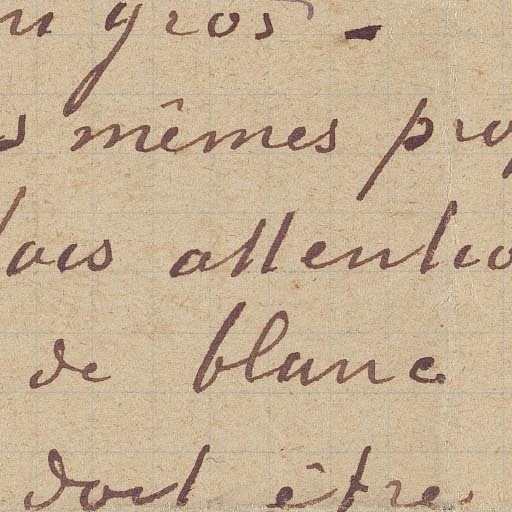 en gros -
mêmes prop
attentio
de blanc
doit être